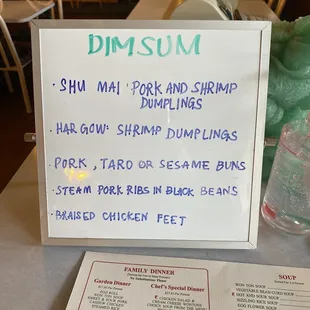 DIMSUM
· SHU MAI: PORK AND SHRIMP
DUMPLINGS
· HAR GOW: SHRIMP DUMPLINGS
· PORK, TARO OR SESAME BUNS
· STEAM PORK RIBS IN BLACK BEANS
· BRAISED CHICKEN FEET
FAMILY DINNER
Garden Dinner
Chef's Special Dinner
EGG ROLL
SOUP
WON TON SOUP
VEGETABLE BEAN CURD SOUP
HOT AND SOUR SOUP
SIZZLING RICE SOUP
EGG FLOWER SOUP